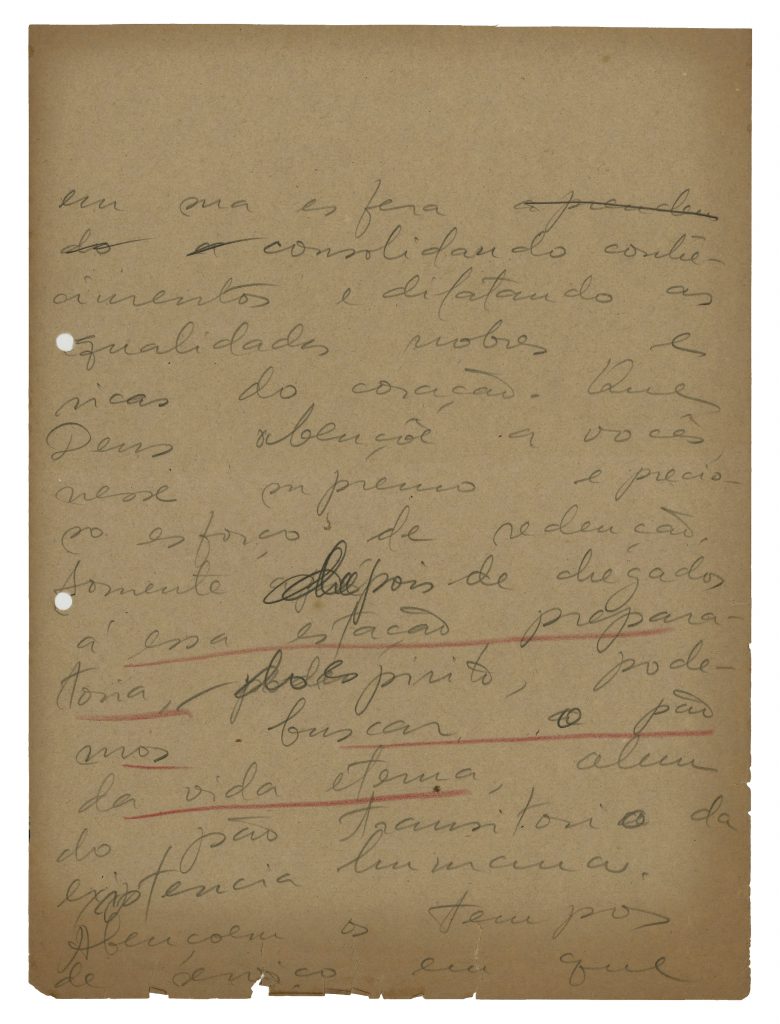 em sua esfera aprenden
do a consolidando conhe-
cimentos e dilatando as
qualidades nobres e
ricas do coração. Que
Deus abençôe a vocês,
nesse supremo e precio-
so esforço de redenção.
Somente depois de chegados
á essa estação prepara-
toria, do espirito, pode-
mos buscar o pão
da vida eterna, alem
do pão transitorio da
existencia humana.
Abençoem os tempos
de serviço em que